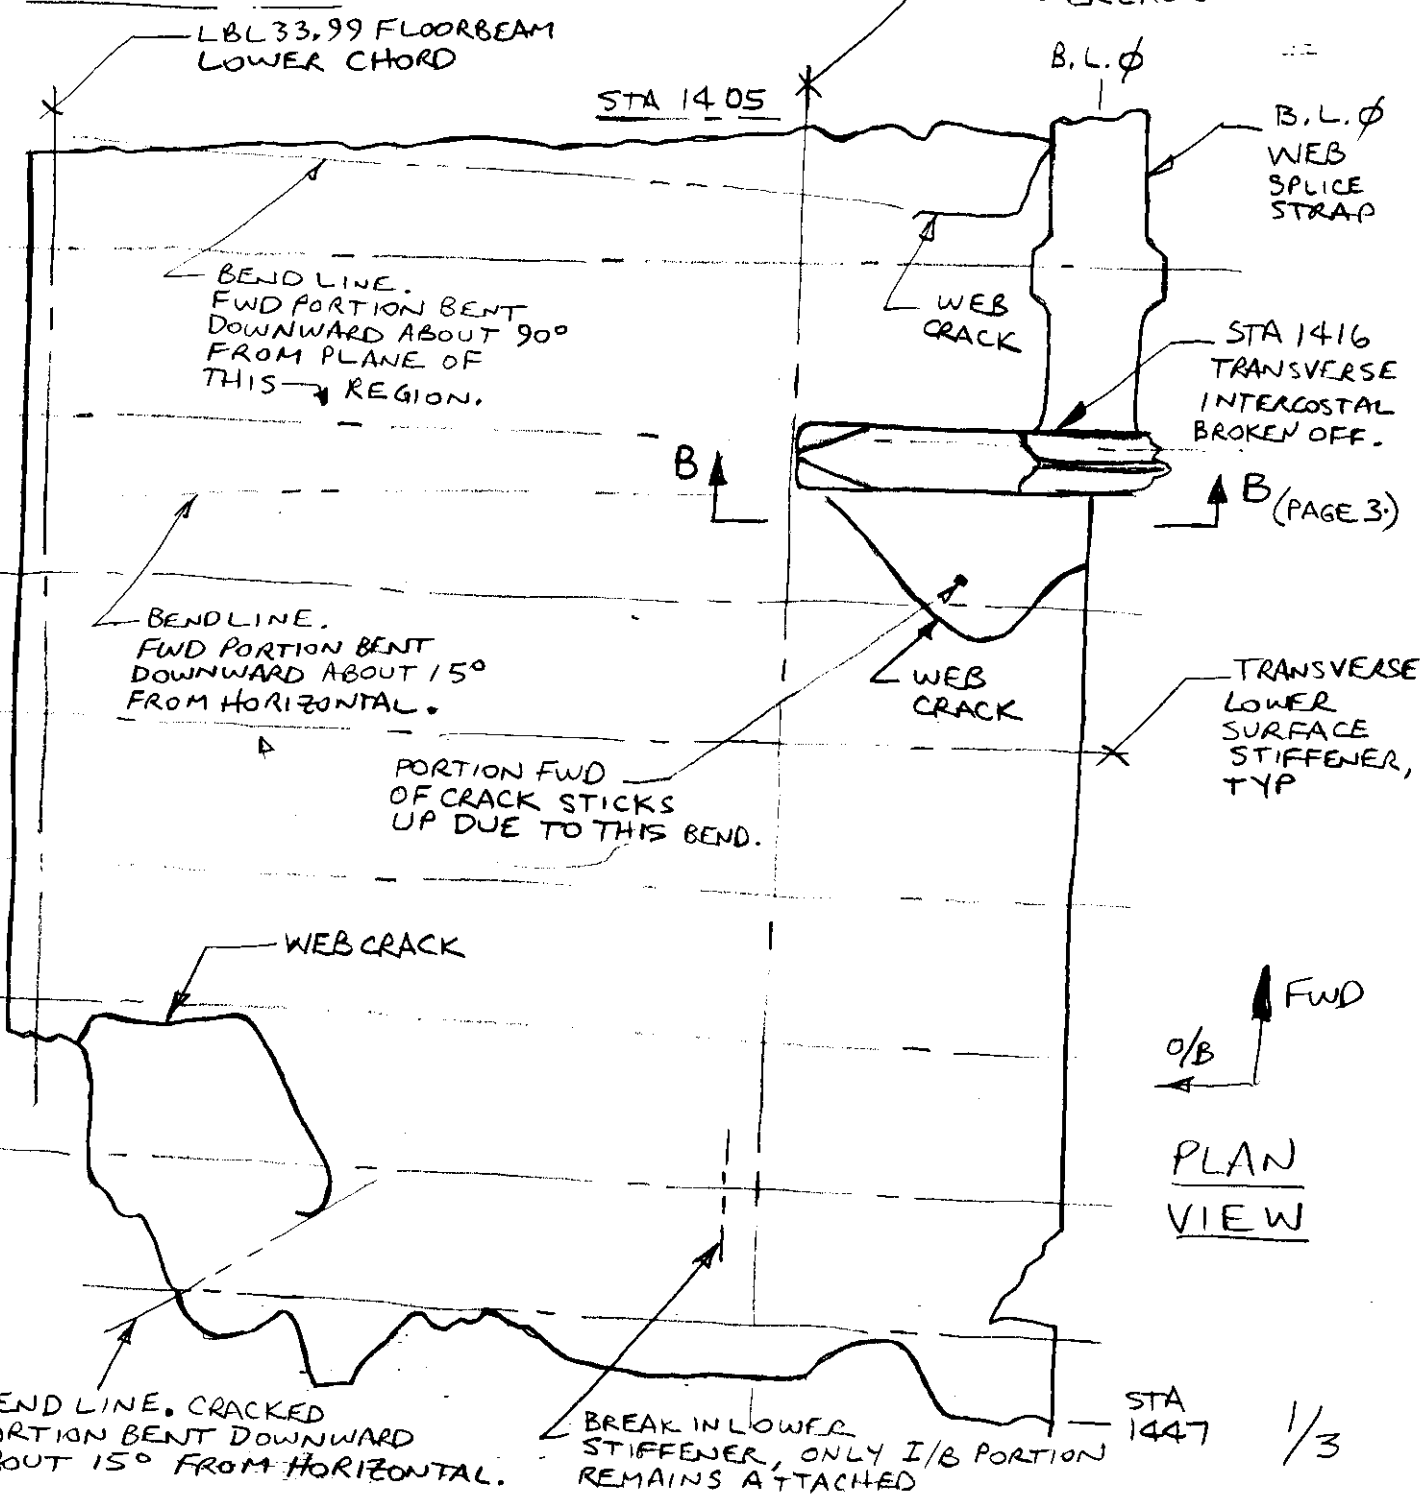 LBL 33.99 FLOORBEAM
LOWER CHORD
STA 1405
B.L.Ø
B.L.Ø
WEB
SPLICE
STRAP
BEND LINE.
FWD PORTION BENT
DOWNWARD ABOUT 90°
FROM PLANE OF
THIS REGION.
WEB
CRACK
STA 1416
TRANSVERSE
INTERCOSTAL
BROKEN OFF.
B
B (PAGE 3.)
BEND LINE.
FWD PORTION BENT
DOWNWARD ABOUT 15°
FROM HORIZONTAL.
WEB
CRACK
TRANSVERSE
LOWER
SURFACE
STIFFENER,
TYP
PORTION FWD
OF CRACK STICKS
UP DUE TO THIS BEND.
WEB CRACK
FWD
O/B
PLAN
VIEW
END LINE. CRACKED
ORTION BENT DOWNWARD
BOUT 15° FROM HORIZONTAL.
BREAK IN LOWER
STIFFENER, ONLY I/B PORTION
REMAINS ATTACHED
STA
1447
1/3